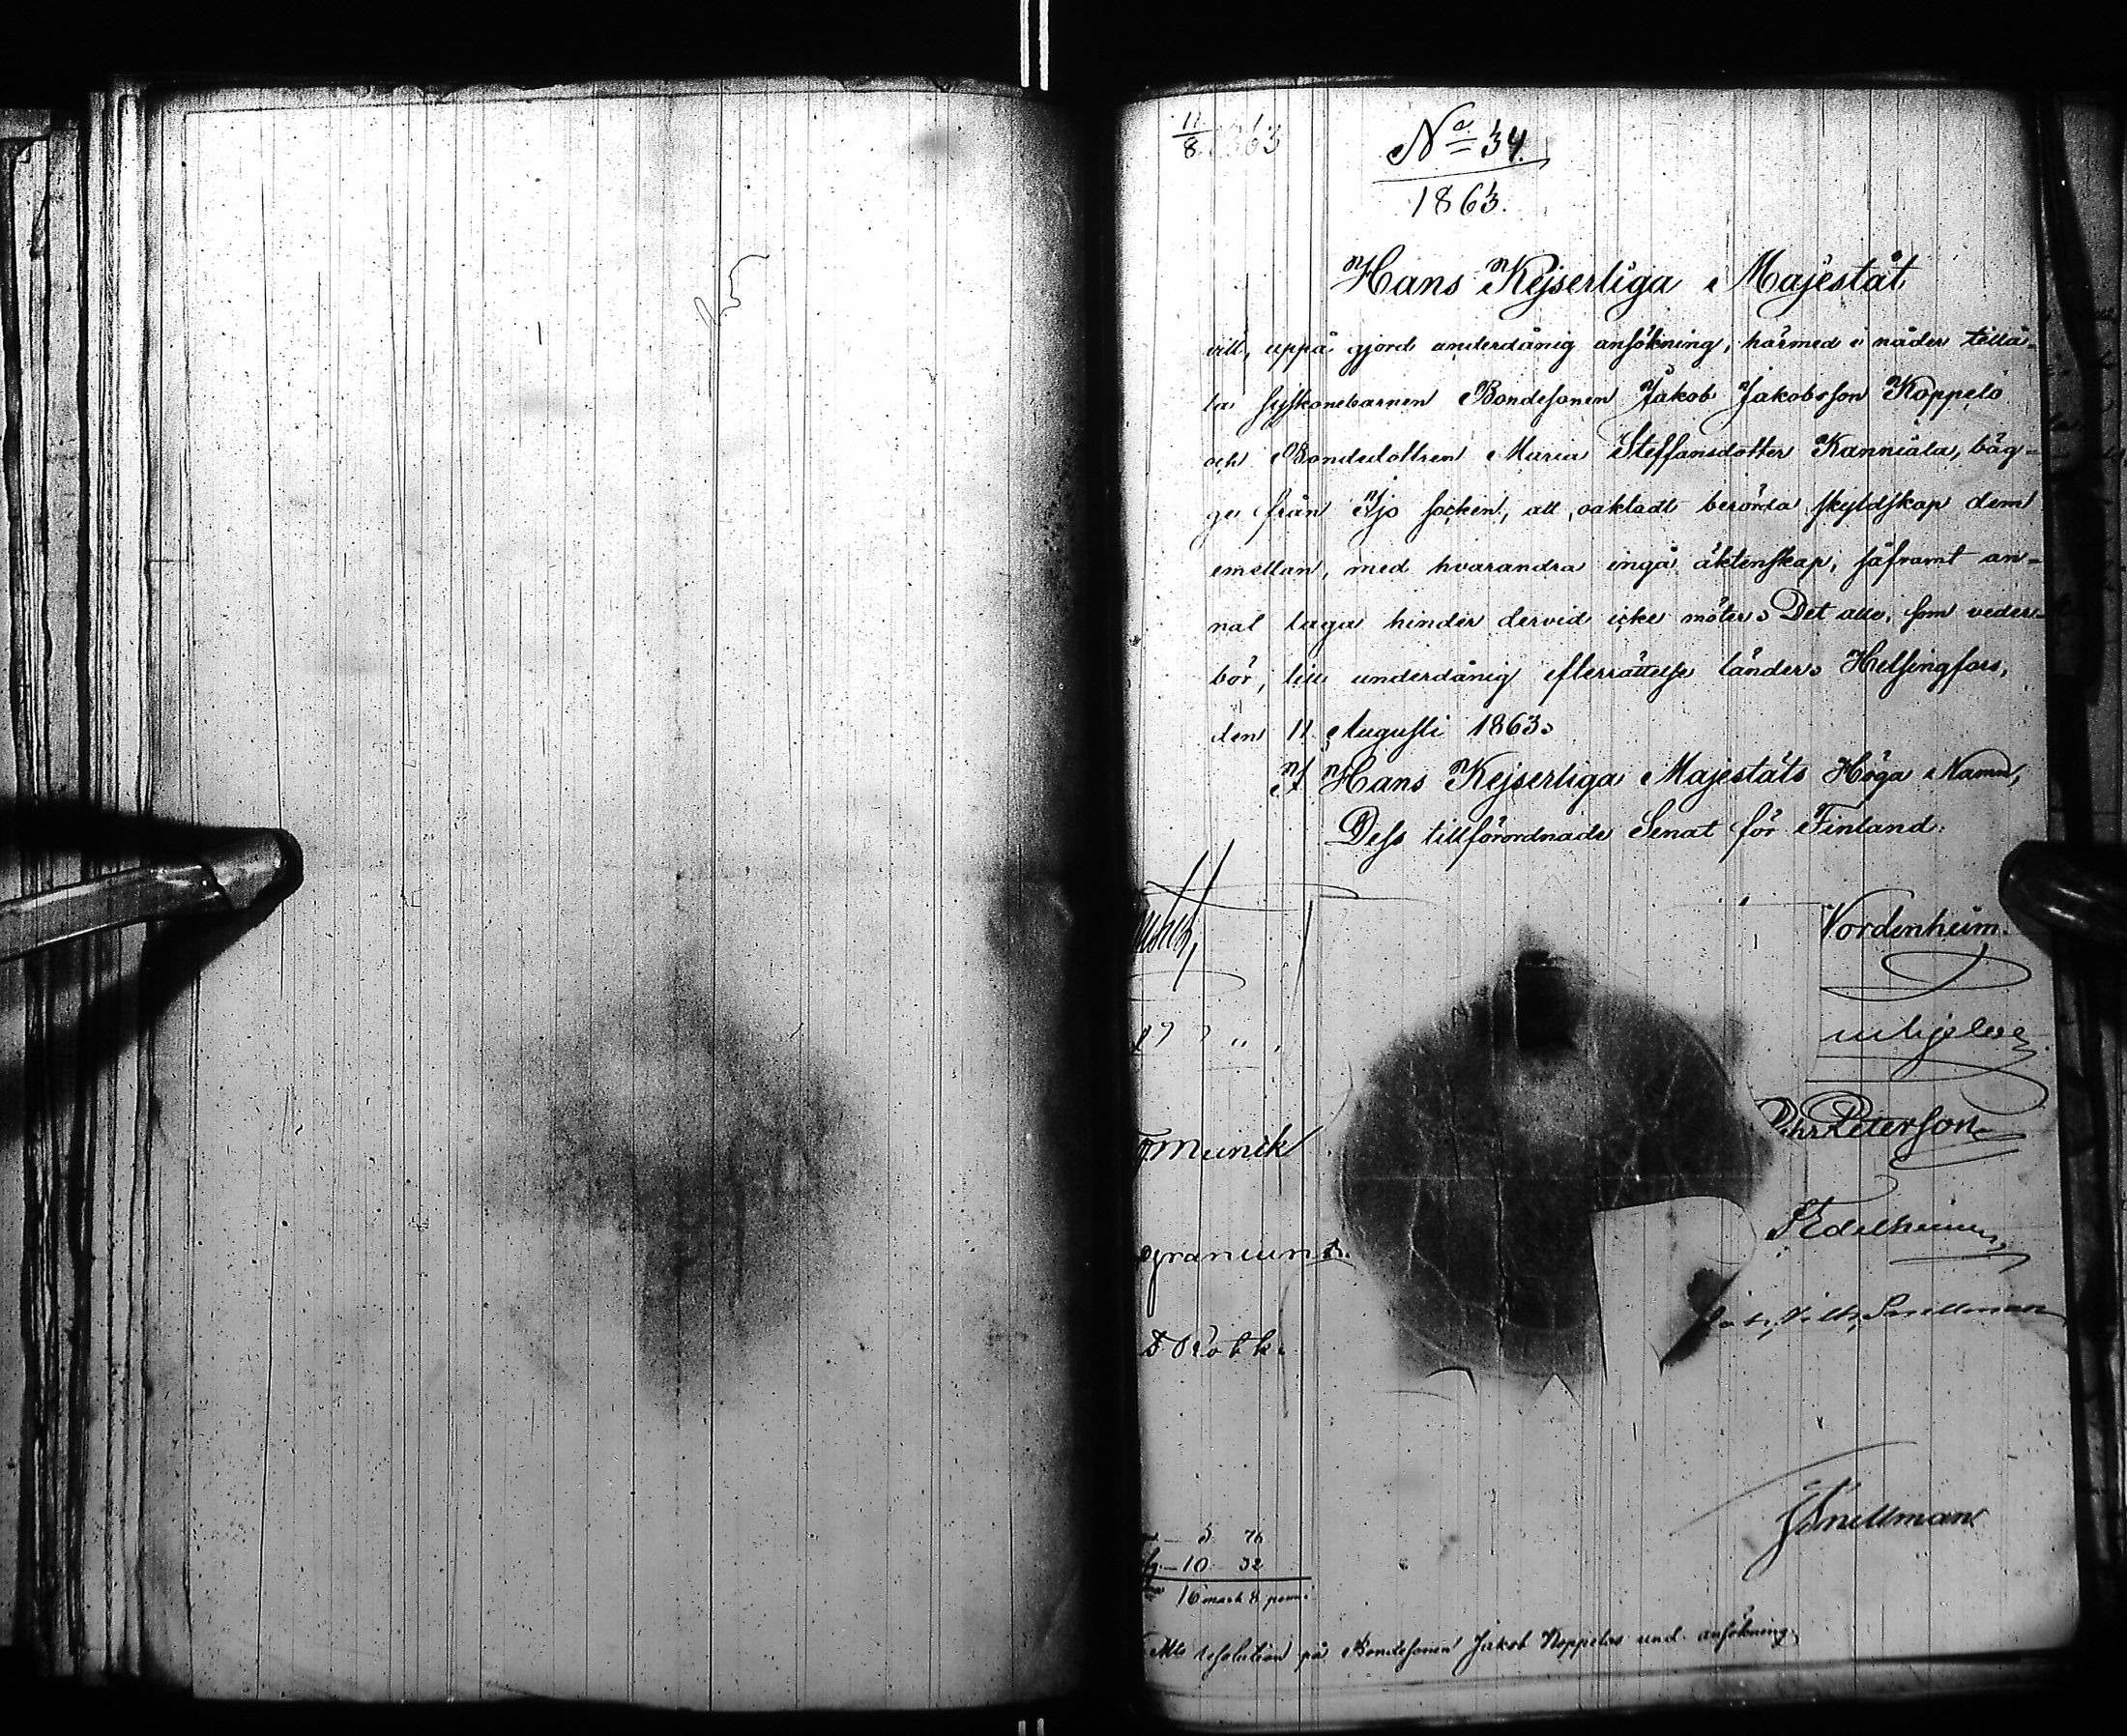 11/8 1863
No 34.
1863.
Hans Kejserliga Majestät
vill, uppå gjord underdånig ansökning, härmed i nåder tillå-
ta syskonebarnen Bondesonen Jakob Jakobsson Koppelo
och Bondedottren Maria Steffansdotter Kanniala, båg-
ge från Ijo socken, att, oaktadt berörda skyldskap dem
emellan, med hvarandra ingå äktenskap, såframt an-
nat laga hinder dervid icke möter. Det alle, som veder-
bör, till underdånig efterrättelse länder. Helsingfors,
den 11 Augusti 1863.
I Hans Kejserliga Majestäts Höga Namn,
Dess tillförordnade Senat för Finland:
Nordenheim.
Pehr Peterson
Munck
Edelheim
Joh. Vilh. Snellman
D Rotkr
Snellman
5 76
10 32
16 mark 8 penni
Mts resolution på Bondesonen Jakob Koppelos und. ansökning.